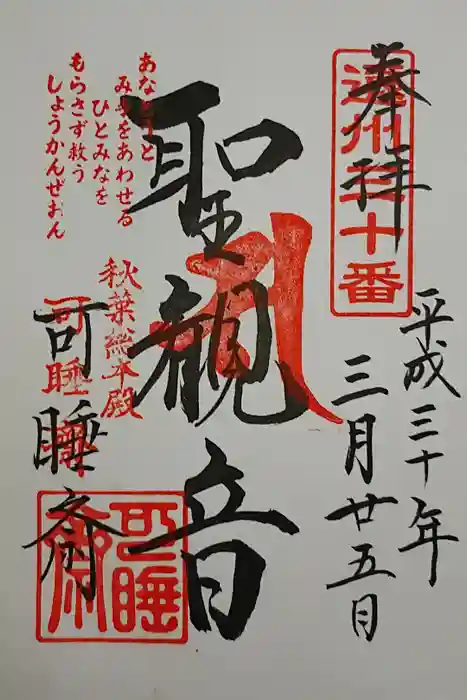 奉拝
遠州三十番
平成三十年
三月廿五月
聖観音
あなとうと
みをあわせる
ひとみなを
もらさず救う
しょうかんぜおん
秋葉総本殿
可睡斎
可睡斎
可睡齋